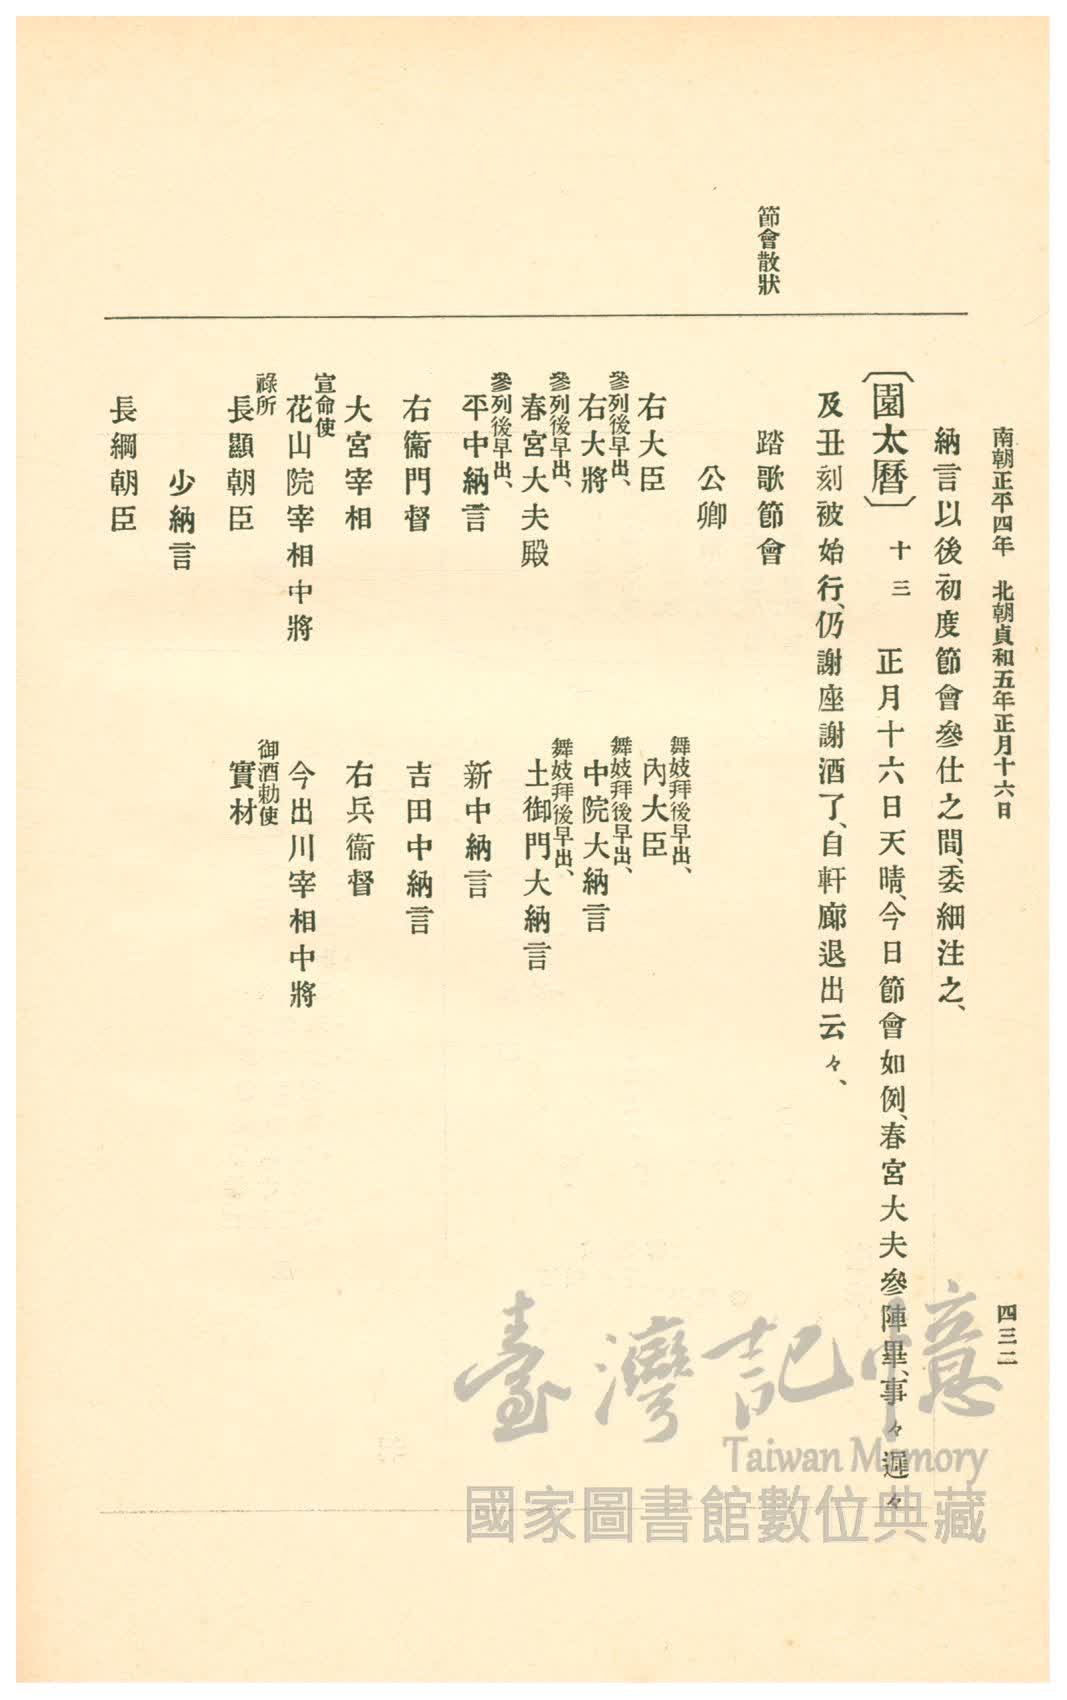 南朝正平四年　北朝貞和五年正月十六日
四三二
節會散狀
納言以後初度節會參仕之間、委細注之、
〔園太曆〕十三　正月十六日天晴、今日節會如例、春宮大夫參陣畢、事々遲々
及丑刻被始行、仍謝座謝酒了、自軒廊退出云々、
踏歌節會
公卿
右大臣
舞妓拜後早出、
內大臣
參列後早出、
右大將
舞妓拜後早出、
中院大納言
參列後早出、
春宮大夫殿
舞妓拜後早出、
土御門大納言
參列後早出、
平中納言
新中納言
右衞門督
吉田中納言
大宮宰相
右兵衞督
宣命使
花山院宰相中將
今出川宰相中將
祿所
長顯朝臣
御酒勅使
實材
少納言
長綱朝臣
臺灣記憶
Taiwan Memory
國家圖書館數位典藏